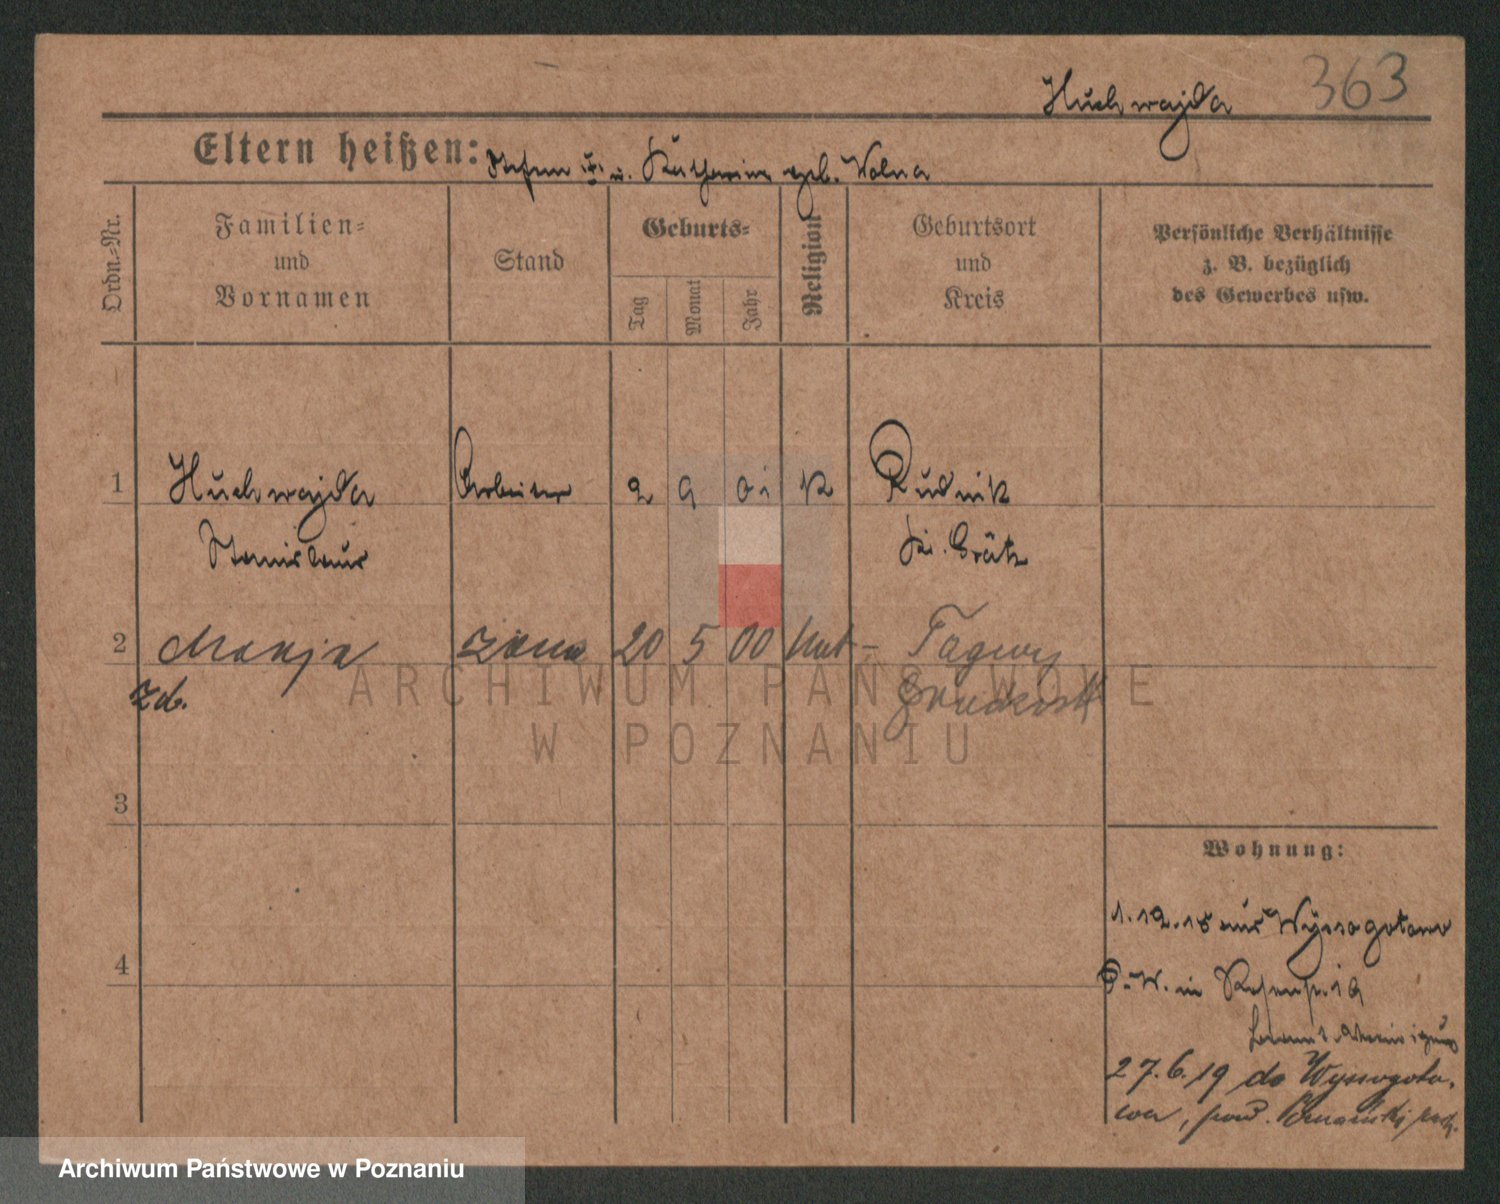 363
Huchwajda
Eltern heißen: Stefan u. Katharina geb. Wolna
Ordn.-Nr.
Familien-
und
Vornamen
Stand
Geburts-
Tag
Monat
Jahr
Religion
Geburtsort
und
Kreis
Persönliche Verhältnisse
z. B. bezüglich
des Gewerbes usw.
1 Huchwajda Arbeiter 2 9 01 K Rudnik
Stanislaus Kr. Grätz
2 Marja żona 20 5 00 kat-
zd.
ARCHIWUM PAŃSTWOWE
W POZNANIU
3
Wohnung:
1.12.15 aus Wyssogotowo
4
27.6.19 do Wyssogoto-
wa, pow.
Archiwum Państwowe w Poznaniu